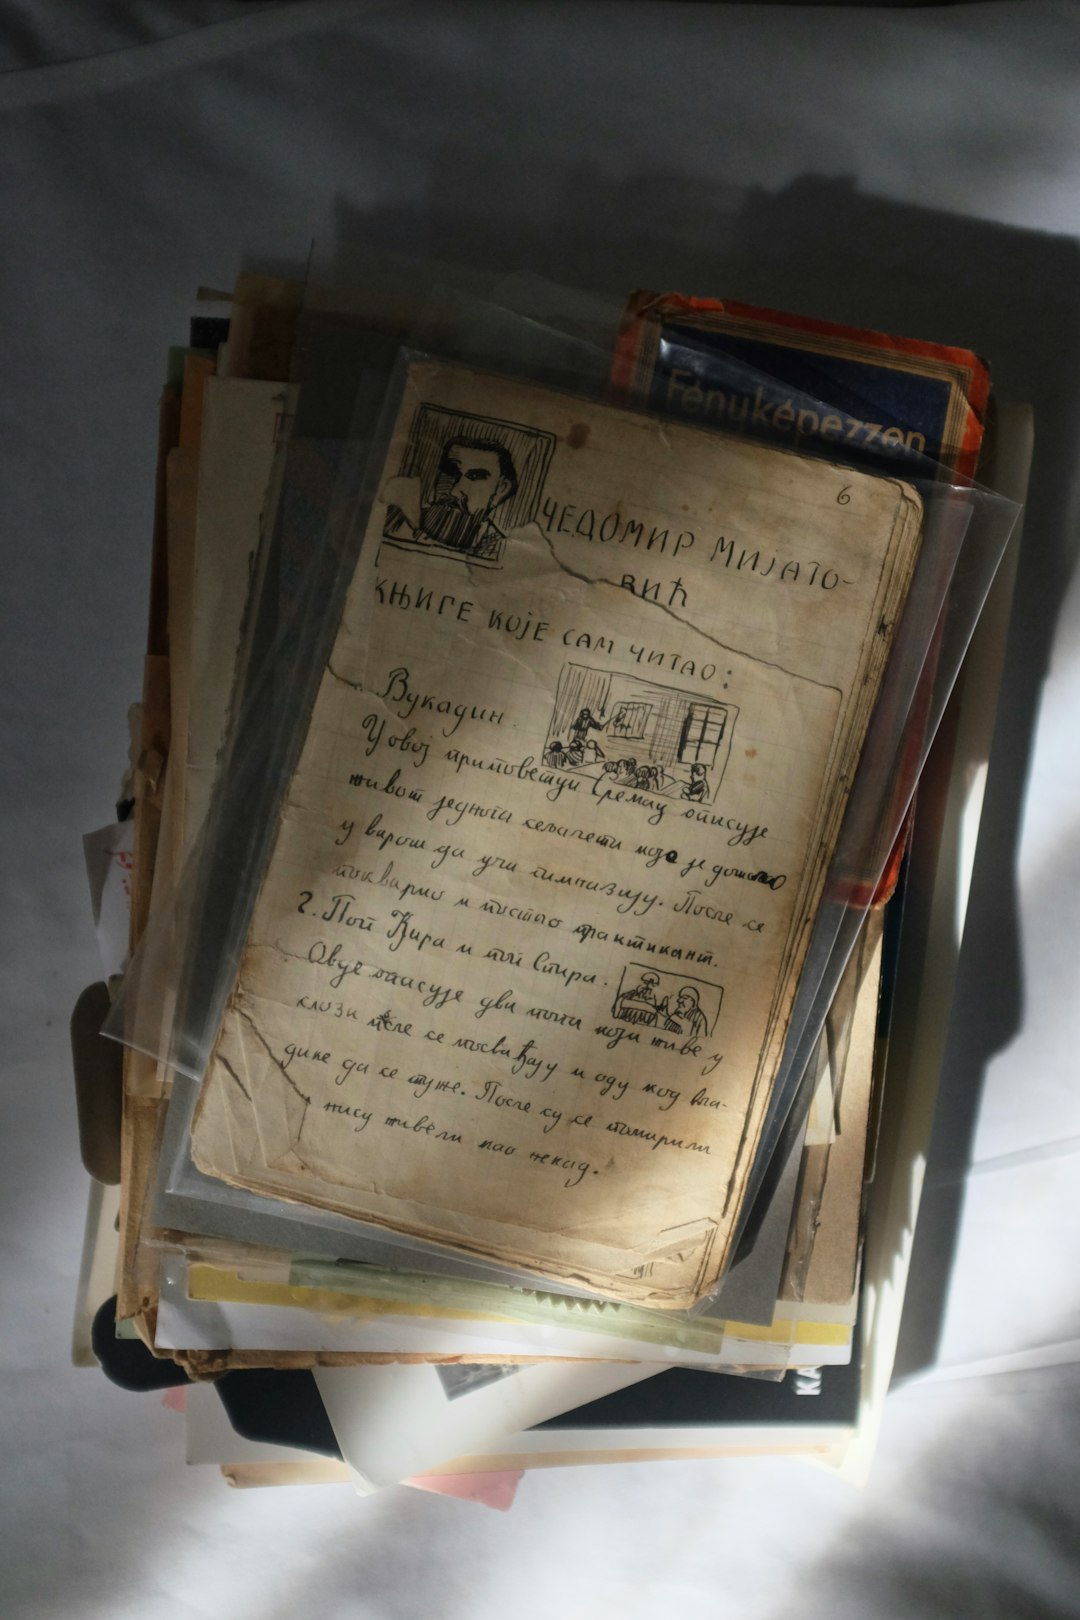 Fényképezzen
6
ЧЕДОМИР МИЈАТО-
ВИЋ
КЊИГЕ КОЈЕ САМ ЧИТАО:
Вукадин.
У овој приповетци Сремац описује
живот једнога сељачета која је дошао
у варош да учи гимназију. После се
покварио и постао практикант.
2. Поп Ћира и поп Спира.
Овде описује два попа који живе у
слози после се посвађају и оду код вла-
дике да се туже. После су се помирили
нису живели као некад.
КА